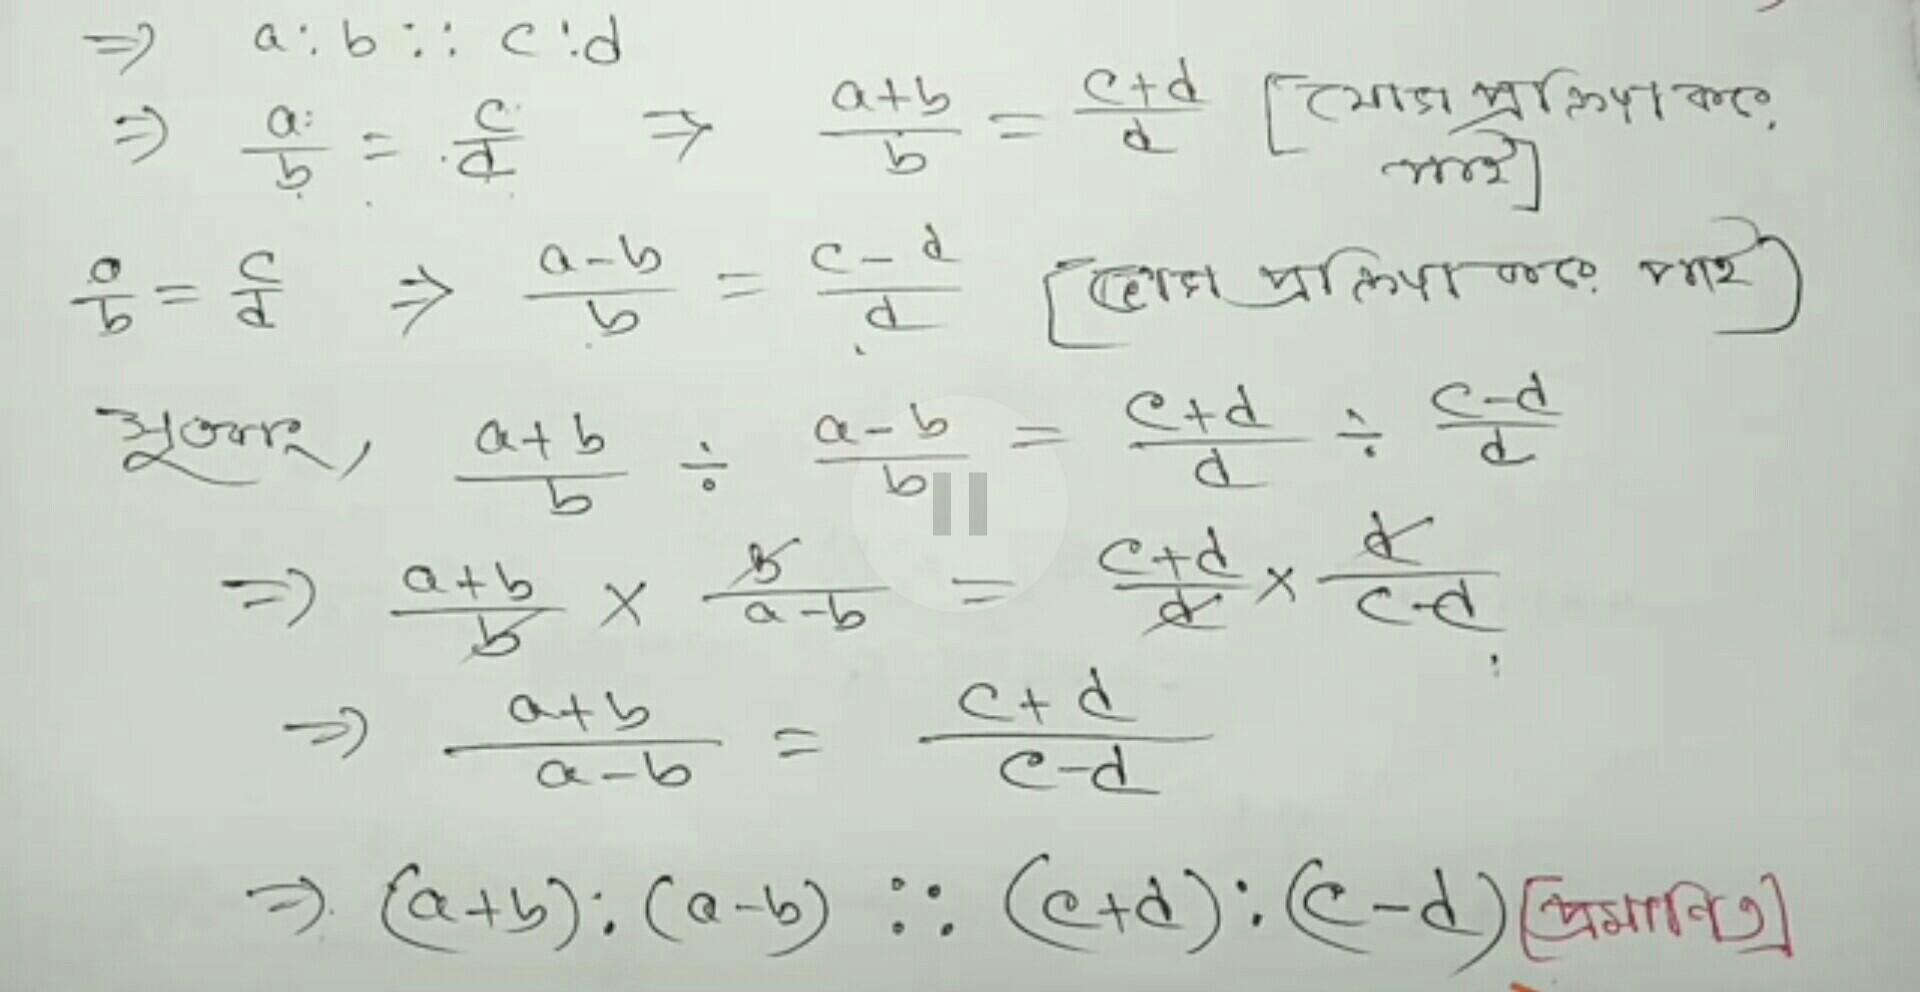 ⇒ a:b :: c:d
⇒ a/b = c/d ⇒ (a+b)/b = (c+d)/d [যোগ প্রক্রিয়া করে পাই]
a/b = c/d ⇒ (a-b)/b = (c-d)/d [প্রক্রিয়া করে পাই]
সুতরাং, (a+b)/b ÷ (a-b)/b = (c+d)/d ÷ (c-d)/d
⇒ (a+b)/b × b/(a-b) = (c+d)/d × d/(c-d)
⇒ (a+b)/(a-b) = (c+d)/(c-d)
⇒ (a+b):(a-b) :: (c+d):(c-d) [প্রমানিত]